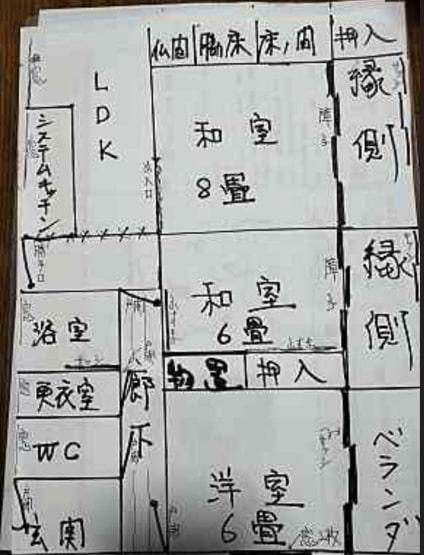 仏間 脇床 床ノ間 押入
LDK
システムキッチン
和室
8畳
障子
縁側
出入口
勝手口
和室
6畳
障子
縁側
浴室
物置 押入
更衣室
廊下
WC
玄関
洋室
6畳
ベランダ
窓
窓
窓